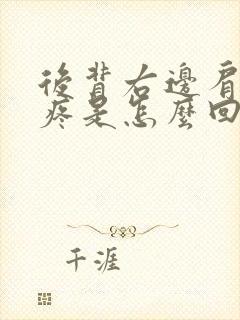 後背右邊肩
疼是怎麼回
千涯